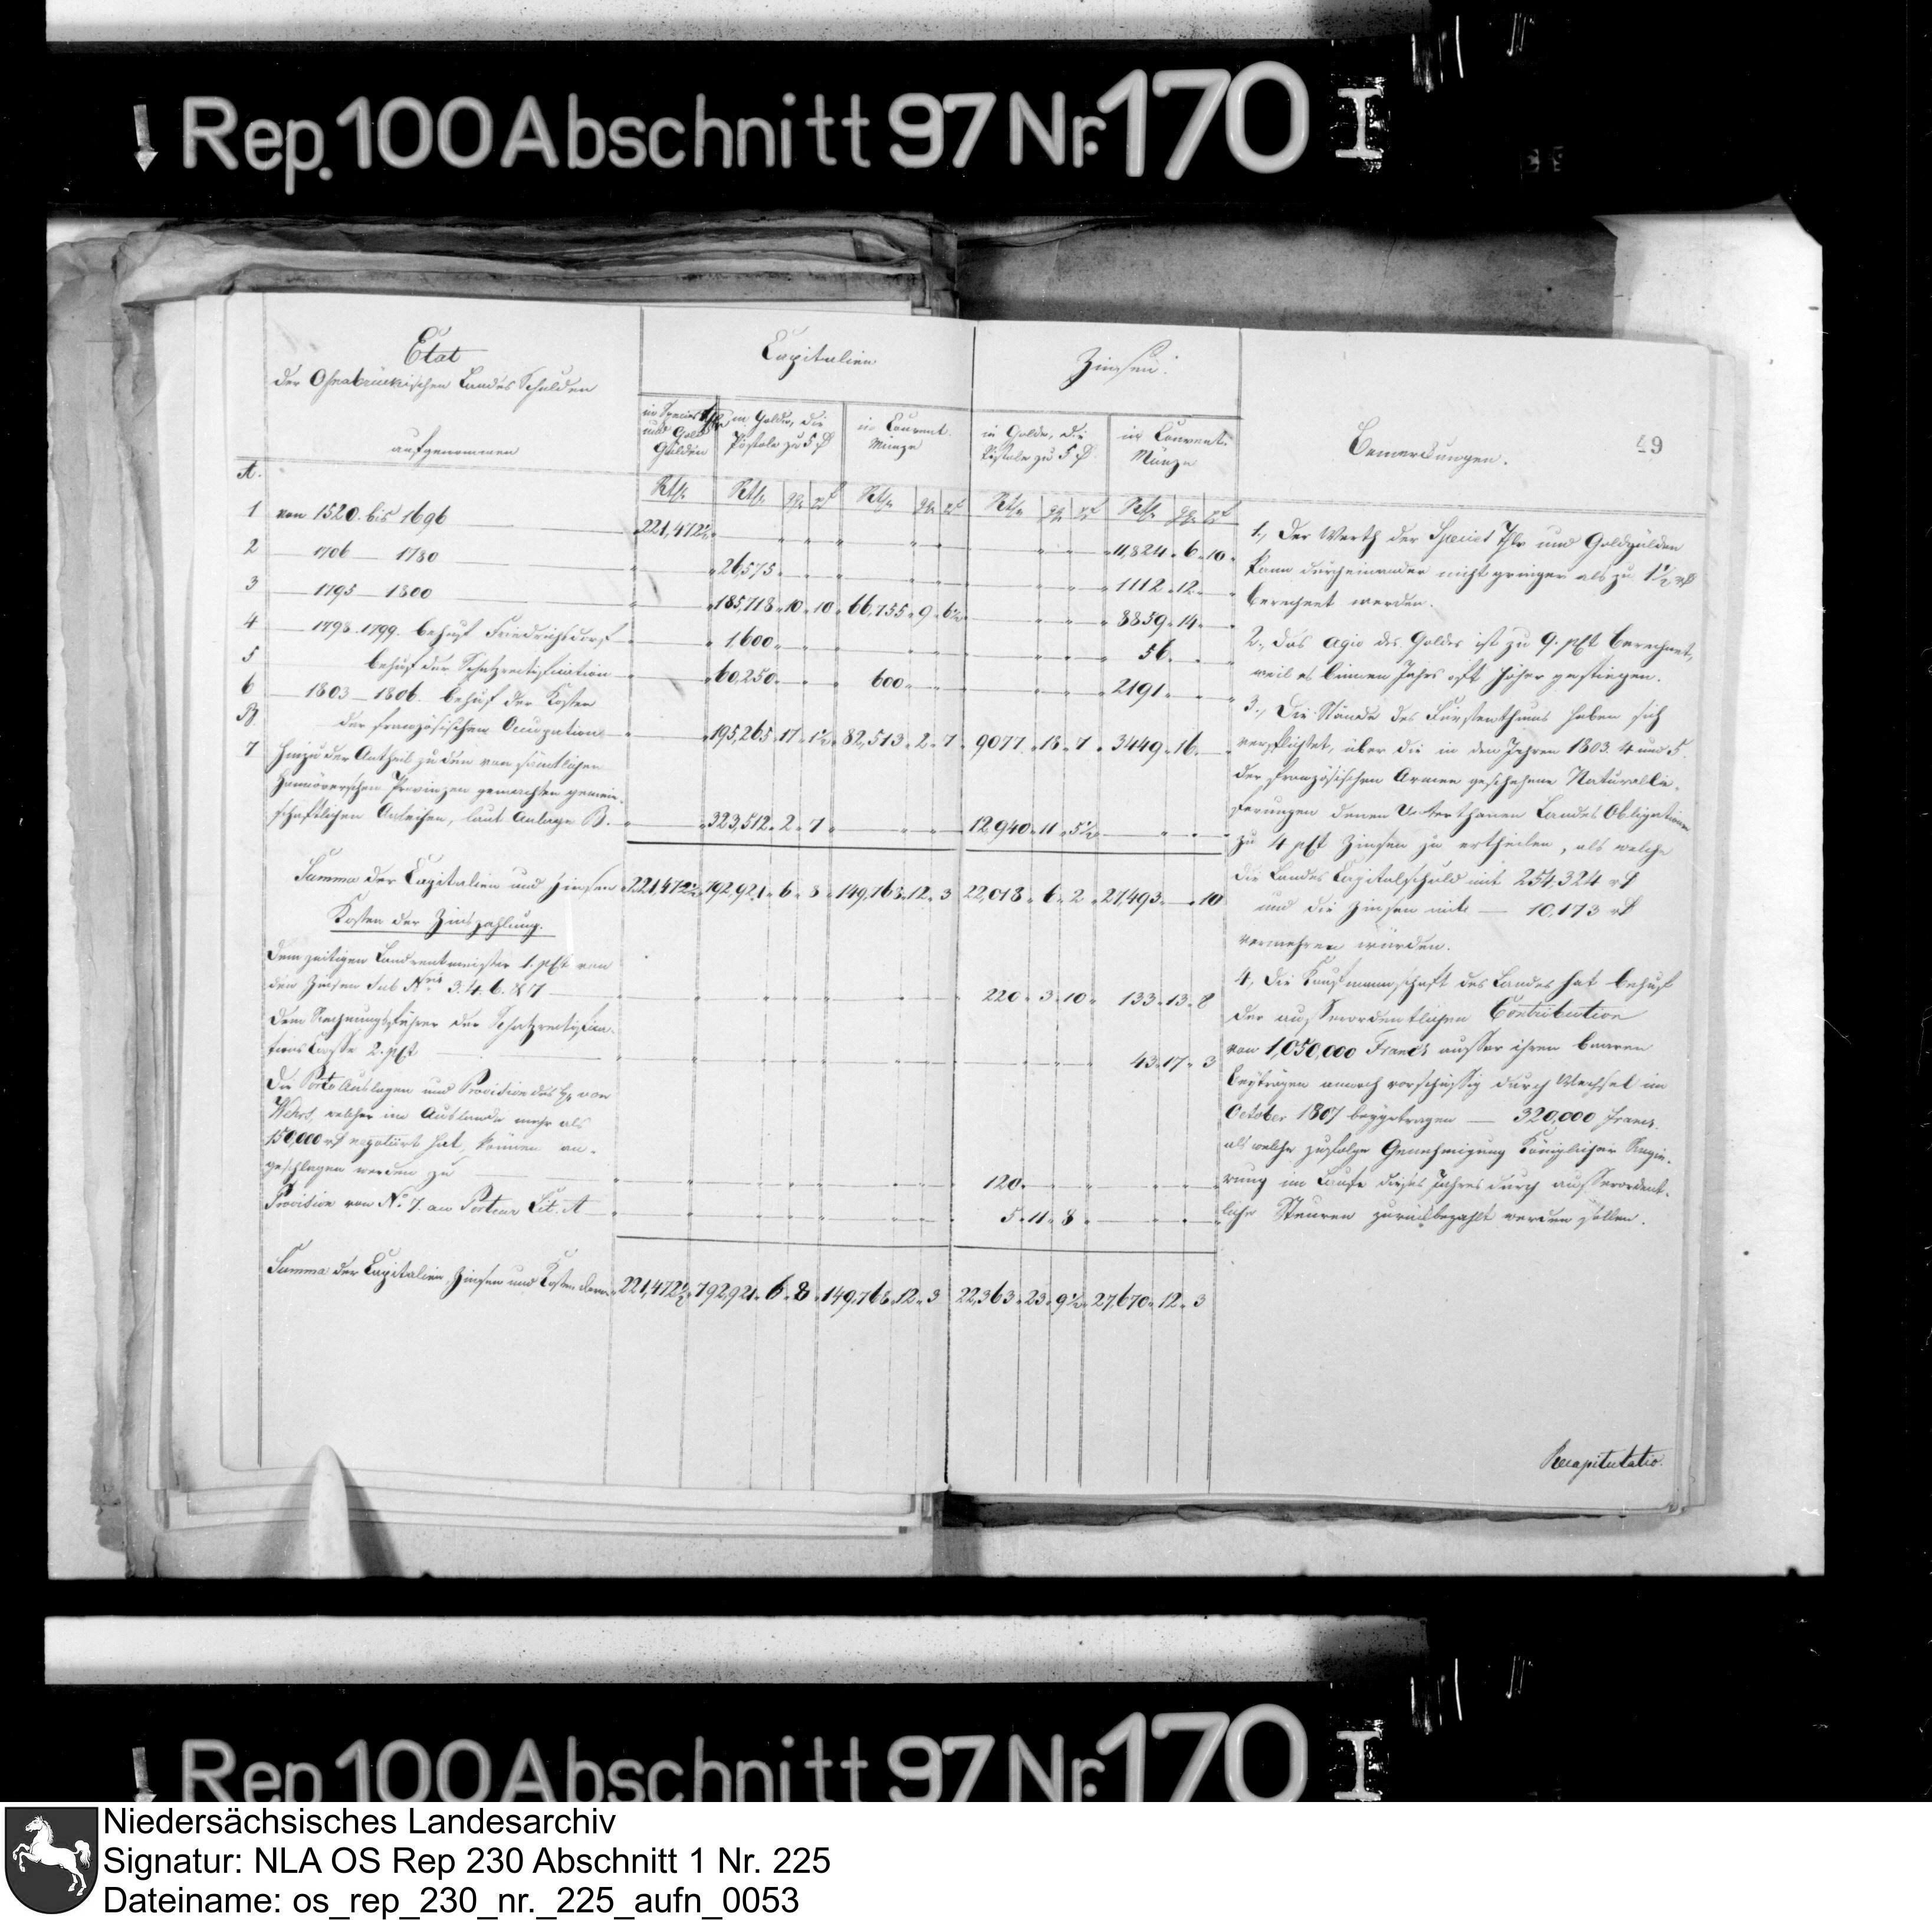 Rep. 100 Abschnitt 97 Nr. 170 I
Etat
der Osnabrückischen Landes Schulden
aufgenommen
Capitalien
Zinsen.
Bemerkungen.
49
in Species Thlr und Gold Gulden
in Golde, die Pistole zu 5 rt
in Courant Münze
in Golde, die Pistole zu 5 rt
in Courant Münze
Rthr Rthr ggr pf Rthr ggr pf Rthr ggr pf Rthr ggr pf
A.
1 von 1520. bis 1696 221,472½ 4,824 6 10
2 1706 1780 26,575 1112 12
3 1795 1800 185,718 10 10 66,755 9 6½ 8859 14
4 1798-1799. behuf Friedrichsdorf 1,600 56
5 behuf der Schatzrectification 60,250 600 2191
6 1803-1806. behuf der Kosten
der französischen Occupation 195,265 17 1½ 82,513 2 7 9077 18 7 3449 16
B.
7 Hinzu der Antheil zu den von sämtlichen
Hannöverschen Provinzen gemachten gemein-
schaftlichen Anleihen, laut Anlage B. 323,512 2 7 12,940 11 5½
Summa der Capitalien und Zinsen 221,472½ 792,921 6 8 149,768 12 3 22,018 6 2 27,493 10
Kosten der Zinszahlung.
Dem zeitigen Landrentmeister 1. pCt von
den Zinsen sub Nris 3. 4. 6. & 7 220 3 10 133 13 8
Dem Rechnungsführer der Schatzrectifica-
tions Casse 2. pCt 43 17 3
Die Porto Auslagen und Provision des H. von
welcher im Auslande mehr als
150,000 rt negotiirt hat, können an-
geschlagen werden zu 120
Provision von No 7. an Porteur Lit. A 5 11 8
Summa der Capitalien, Zinsen und Kosten 221,472½ 792,921 6 8 149,768 12 3 22,363 23 9½ 27,670 12 3
1., Der Werth der Species Thlr und Goldgülden
kann durcheinander nicht geringer als zu 1½ rt
berechnet werden.
2., das agio des Goldes ist zu 9. pCt berechnet,
weil es binnen Jahrs oft höher gestiegen.
3., Die Stände des Fürstenthums haben sich
verpflichtet, über die in den Jahren 1803. 4 und 5.
der französischen Armee geschehene Naturallie-
ferungen denen Unterthanen Landes Obligationen
zu 4 pCt Zinsen zu ertheilen, als welche
die Landes Capitalschuld mit 254,324 rt
und die Zinsen mit 10,173 rt
vermehren würden.
4, die Kaufmannschaft des Landes hat behuf
der ausserordentlichen Contribution
von 1,050,000 Francs ausser ihren baaren
Beyträgen annoch vorschüssig durch Wechsel im
October 1807 beygetragen 320,000 Francs.
als welche zufolge Genehmigung Königlicher Regie-
rung im Laufe dieses Jahres durch ausserordent-
liche Steuren zurückbezahlt werden sollen.
Recapitulatio.
Rep. 100 Abschnitt 97 Nr. 170 I
Niedersächsisches Landesarchiv
Signatur: NLA OS Rep 230 Abschnitt 1 Nr. 225
Dateiname: os_rep_230_nr._225_aufn_0053